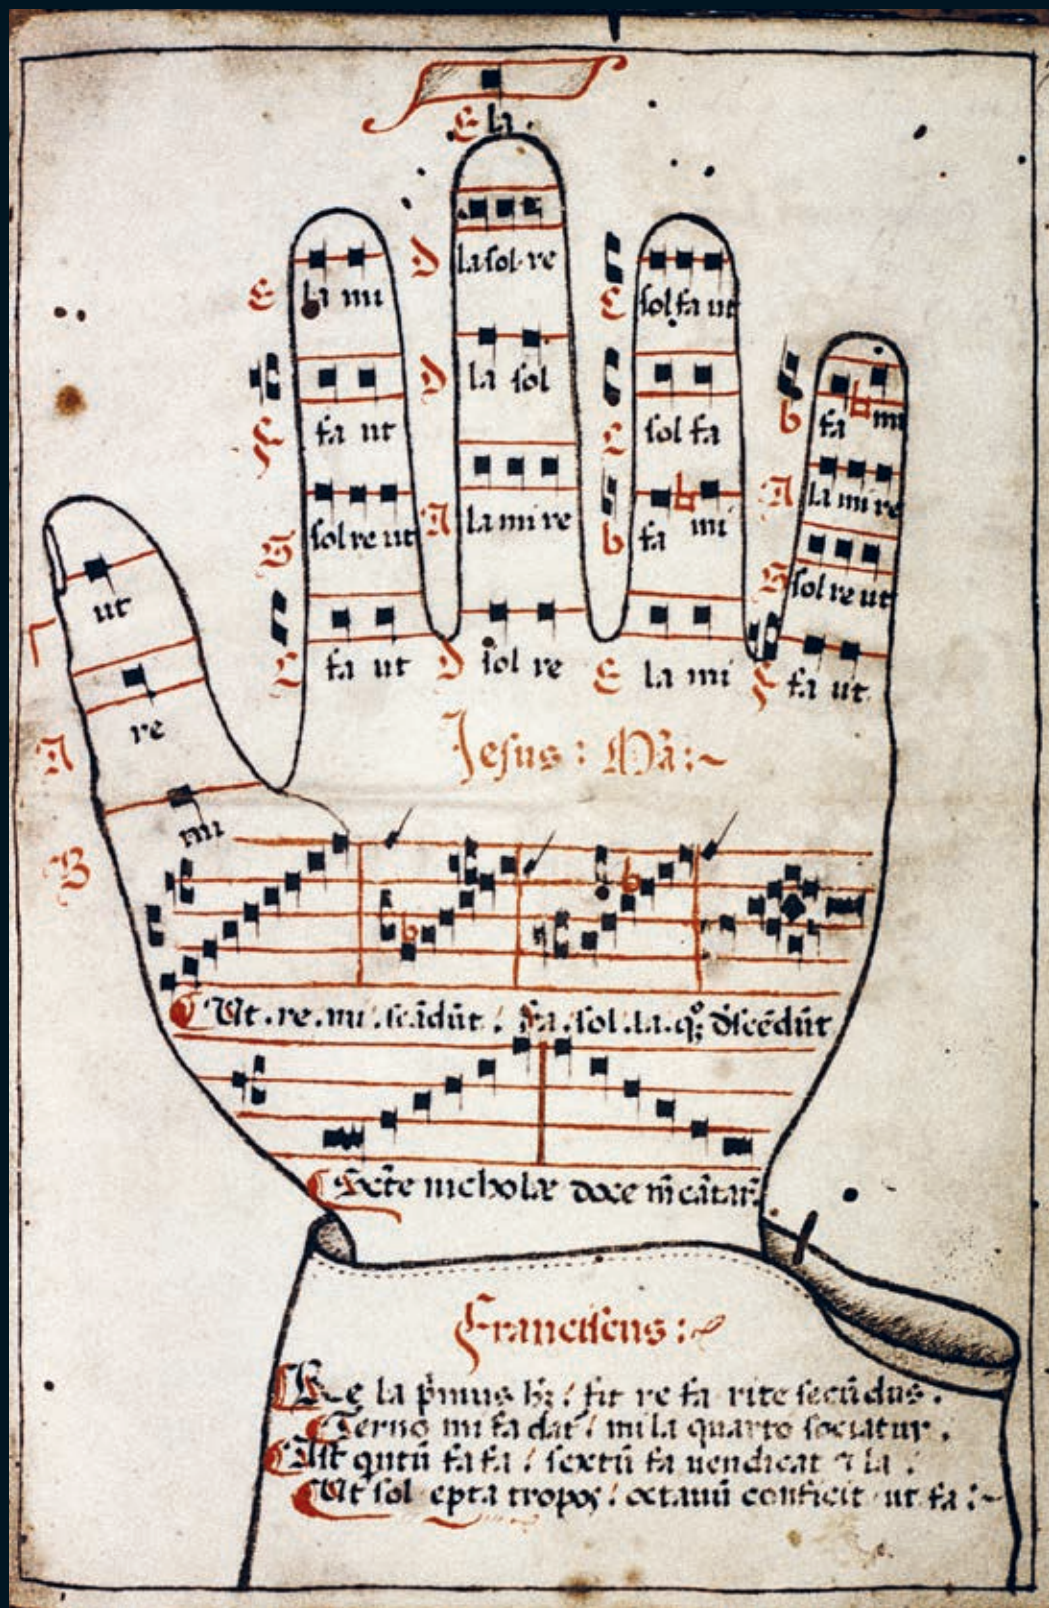 E la
E la mi
D la sol re
C sol fa ut
F fa ut
D la sol
C sol fa
b fa ♭ mi
G sol re ut
A la mi re
b fa ♭ mi
A la mi re
G sol re ut
Γ ut
C fa ut
D sol re
E la mi
F fa ut
A re
Jesus : Mã :~
B mi
Ut . re . mi . scãdũt / fa . sol . la . qꝫ dʼscẽdũt
nicholae doce m̃ cãtar̃
Franciscus :~
Re la p̃mus hꝫ / fit re fa rite secũdus .
Terno mi fa dat / mi la quarto sociatur .
Ast qntũ fa fa / sextũ fa uendicat la /
Ut sol tropoꝝ / octauũ conficit ut fa :~